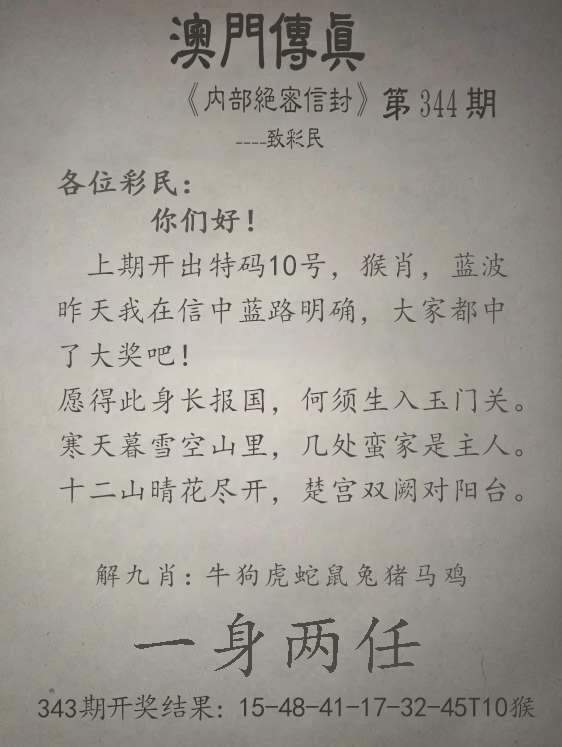 澳門傳眞
《内部絕密信封》第344期
----致彩民
各位彩民：
你们好！
上期开出特码10号，猴肖，蓝波
昨天我在信中蓝路明确，大家都中
了大奖吧！
愿得此身长报国，何须生入玉门关。
寒天暮雪空山里，几处蛮家是主人。
十二山晴花尽开，楚宫双阙对阳台。
解九肖：牛狗虎蛇鼠兔猪马鸡
一身两任
343期开奖结果：15-48-41-17-32-45T10猴